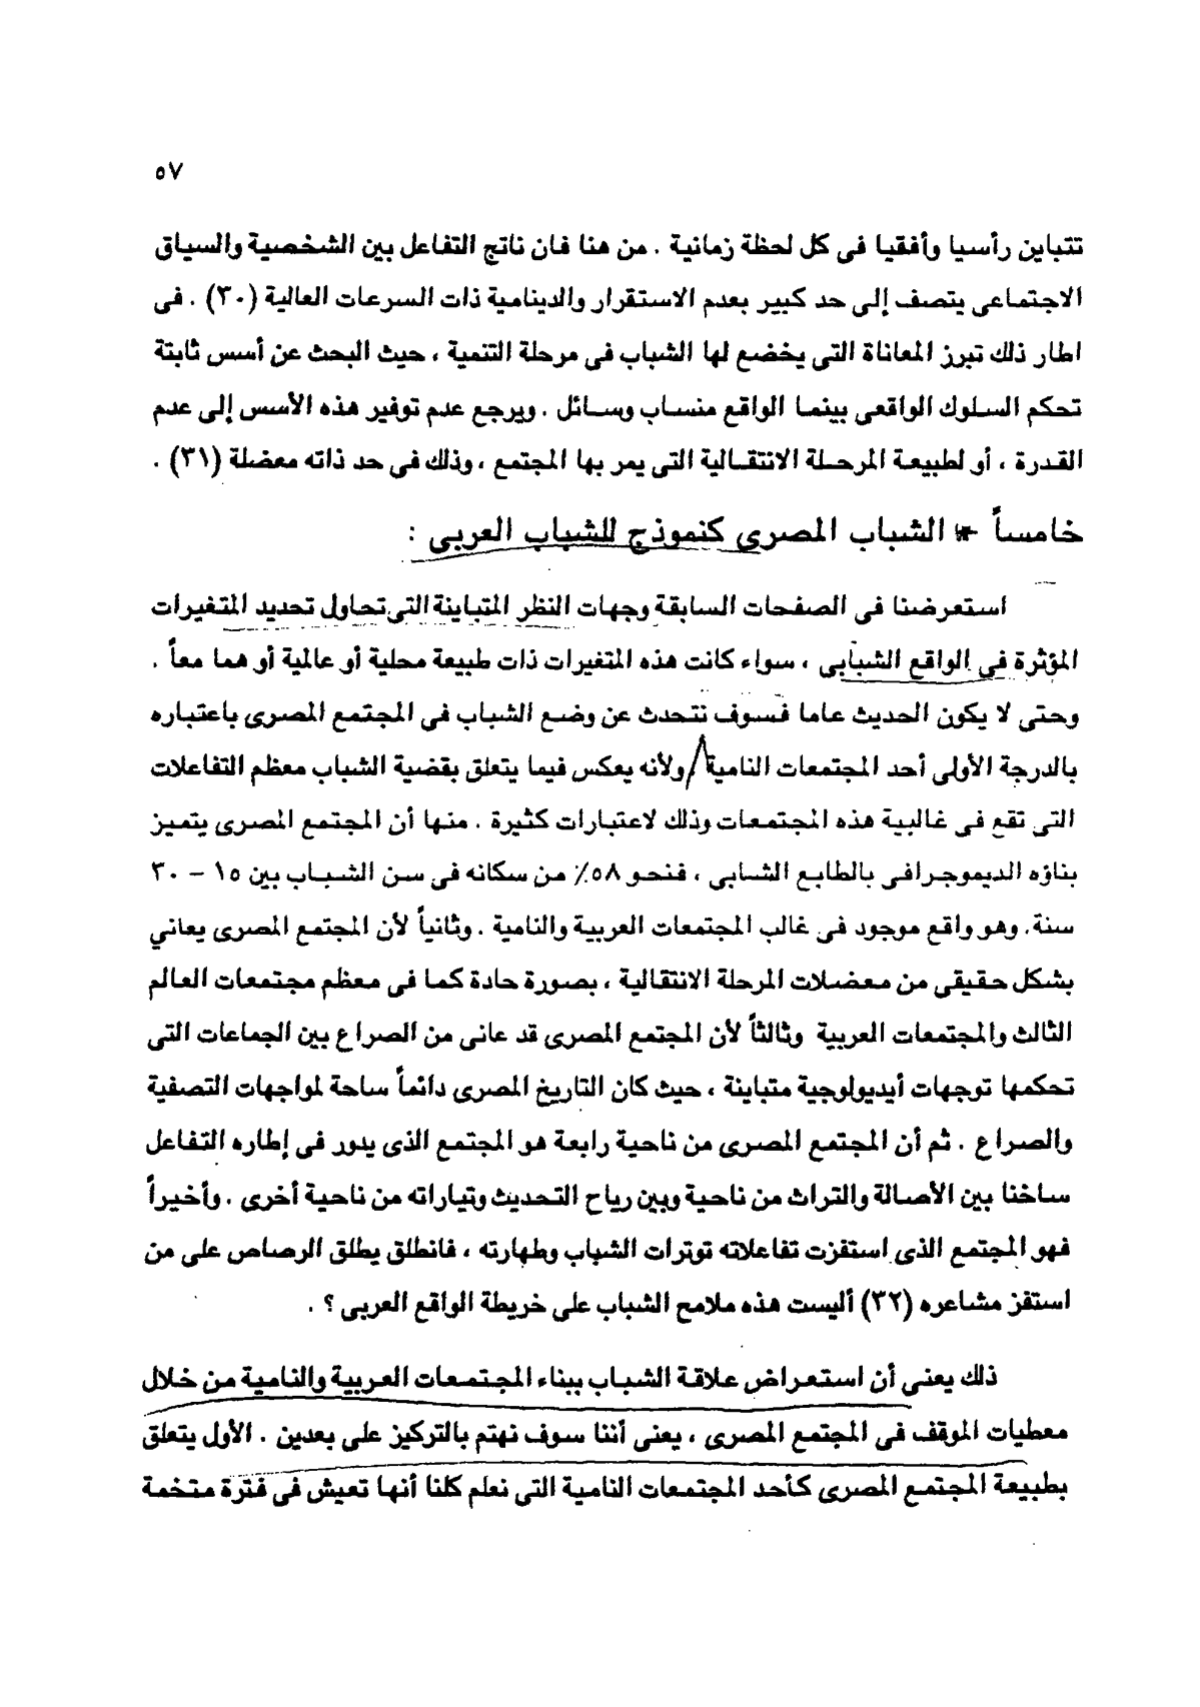 ٥٧
تتباين رأسيا وأفقيا فى كل لحظة زمانية . من هنا فان ناتج التفاعل بين الشخصية والسياق
الاجتماعى يتصف إلى حد كبير بعدم الاستقرار والدينامية ذات السرعات العالية (٣٠) . فى
اطار ذلك تبرز المعاناة التى يخضع لها الشباب فى مرحلة التنمية ، حيث البحث عن أسس ثابتة
تحكم السلوك الواقعى بينما الواقع منساب وسائل . ويرجع عدم توفير هذه الأسس إلى عدم
القدرة ، أو لطبيعة المرحلة الانتقالية التى يمر بها المجتمع ، وذلك فى حد ذاته معضلة (٣١) .
خامساً * الشباب المصرى كنموذج للشباب العربى :
استعرضنا فى الصفحات السابقة وجهات النظر المتباينة التى تحاول تحديد المتغيرات
المؤثرة فى الواقع الشبابى ، سواء كانت هذه المتغيرات ذات طبيعة محلية أو عالمية أو هما معاً .
وحتى لا يكون الحديث عاما فسوف نتحدث عن وضع الشباب فى المجتمع المصرى باعتباره
بالدرجة الأولى أحد المجتمعات النامية ولأنه يعكس فيما يتعلق بقضية الشباب معظم التفاعلات
التى تقع فى غالبية هذه المجتمعات وذلك لاعتبارات كثيرة . منها أن المجتمع المصرى يتميز
بناؤه الديموجرافى بالطابع الشابى ، فنحو ٥٨٪ من سكانه فى سن الشباب بين ١٥ – ٣٠
سنة. وهو واقع موجود فى غالب المجتمعات العربية والنامية . وثانياً لأن المجتمع المصرى يعاني
بشكل حقيقى من معضلات المرحلة الانتقالية ، بصورة حادة كما فى معظم مجتمعات العالم
الثالث والمجتمعات العربية وثالثاً لأن المجتمع المصرى قد عانى من الصراع بين الجماعات التى
تحكمها توجهات أيديولوجية متباينة ، حيث كان التاريخ المصرى دائماً ساحة لمواجهات التصفية
والصراع . ثم أن المجتمع المصرى من ناحية رابعة هو المجتمع الذى يدور فى إطاره التفاعل
ساخنا بين الأصالة والتراث من ناحية وبين رياح التحديث وتياراته من ناحية أخرى . وأخيراً
فهو المجتمع الذى استفزت تفاعلاته توترات الشباب وطهارته ، فانطلق يطلق الرصاص على من
استفز مشاعره (٣٢) أليست هذه ملامح الشباب على خريطة الواقع العربى ؟ .
ذلك يعنى أن استعراض علاقة الشباب ببناء المجتمعات العربية والنامية من خلال
معطيات الموقف فى المجتمع المصرى ، يعنى أننا سوف نهتم بالتركيز على بعدين . الأول يتعلق
بطبيعة المجتمع المصرى كأحد المجتمعات النامية التى نعلم كلنا أنها تعيش فى فترة متخمة